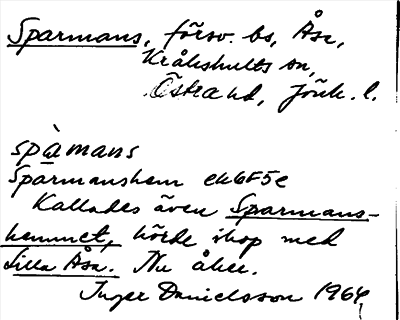 Sparmans, försv. bs, Åsa,
Kråkshults sn,
Östra hd, Jönk. l.
spàmans
Sparmanshem ek6F5e
Kallades även Sparmans-
hemmet, hörde ihop med
Lilla Åsa. Nu åker.
Inger Danielsson 1964